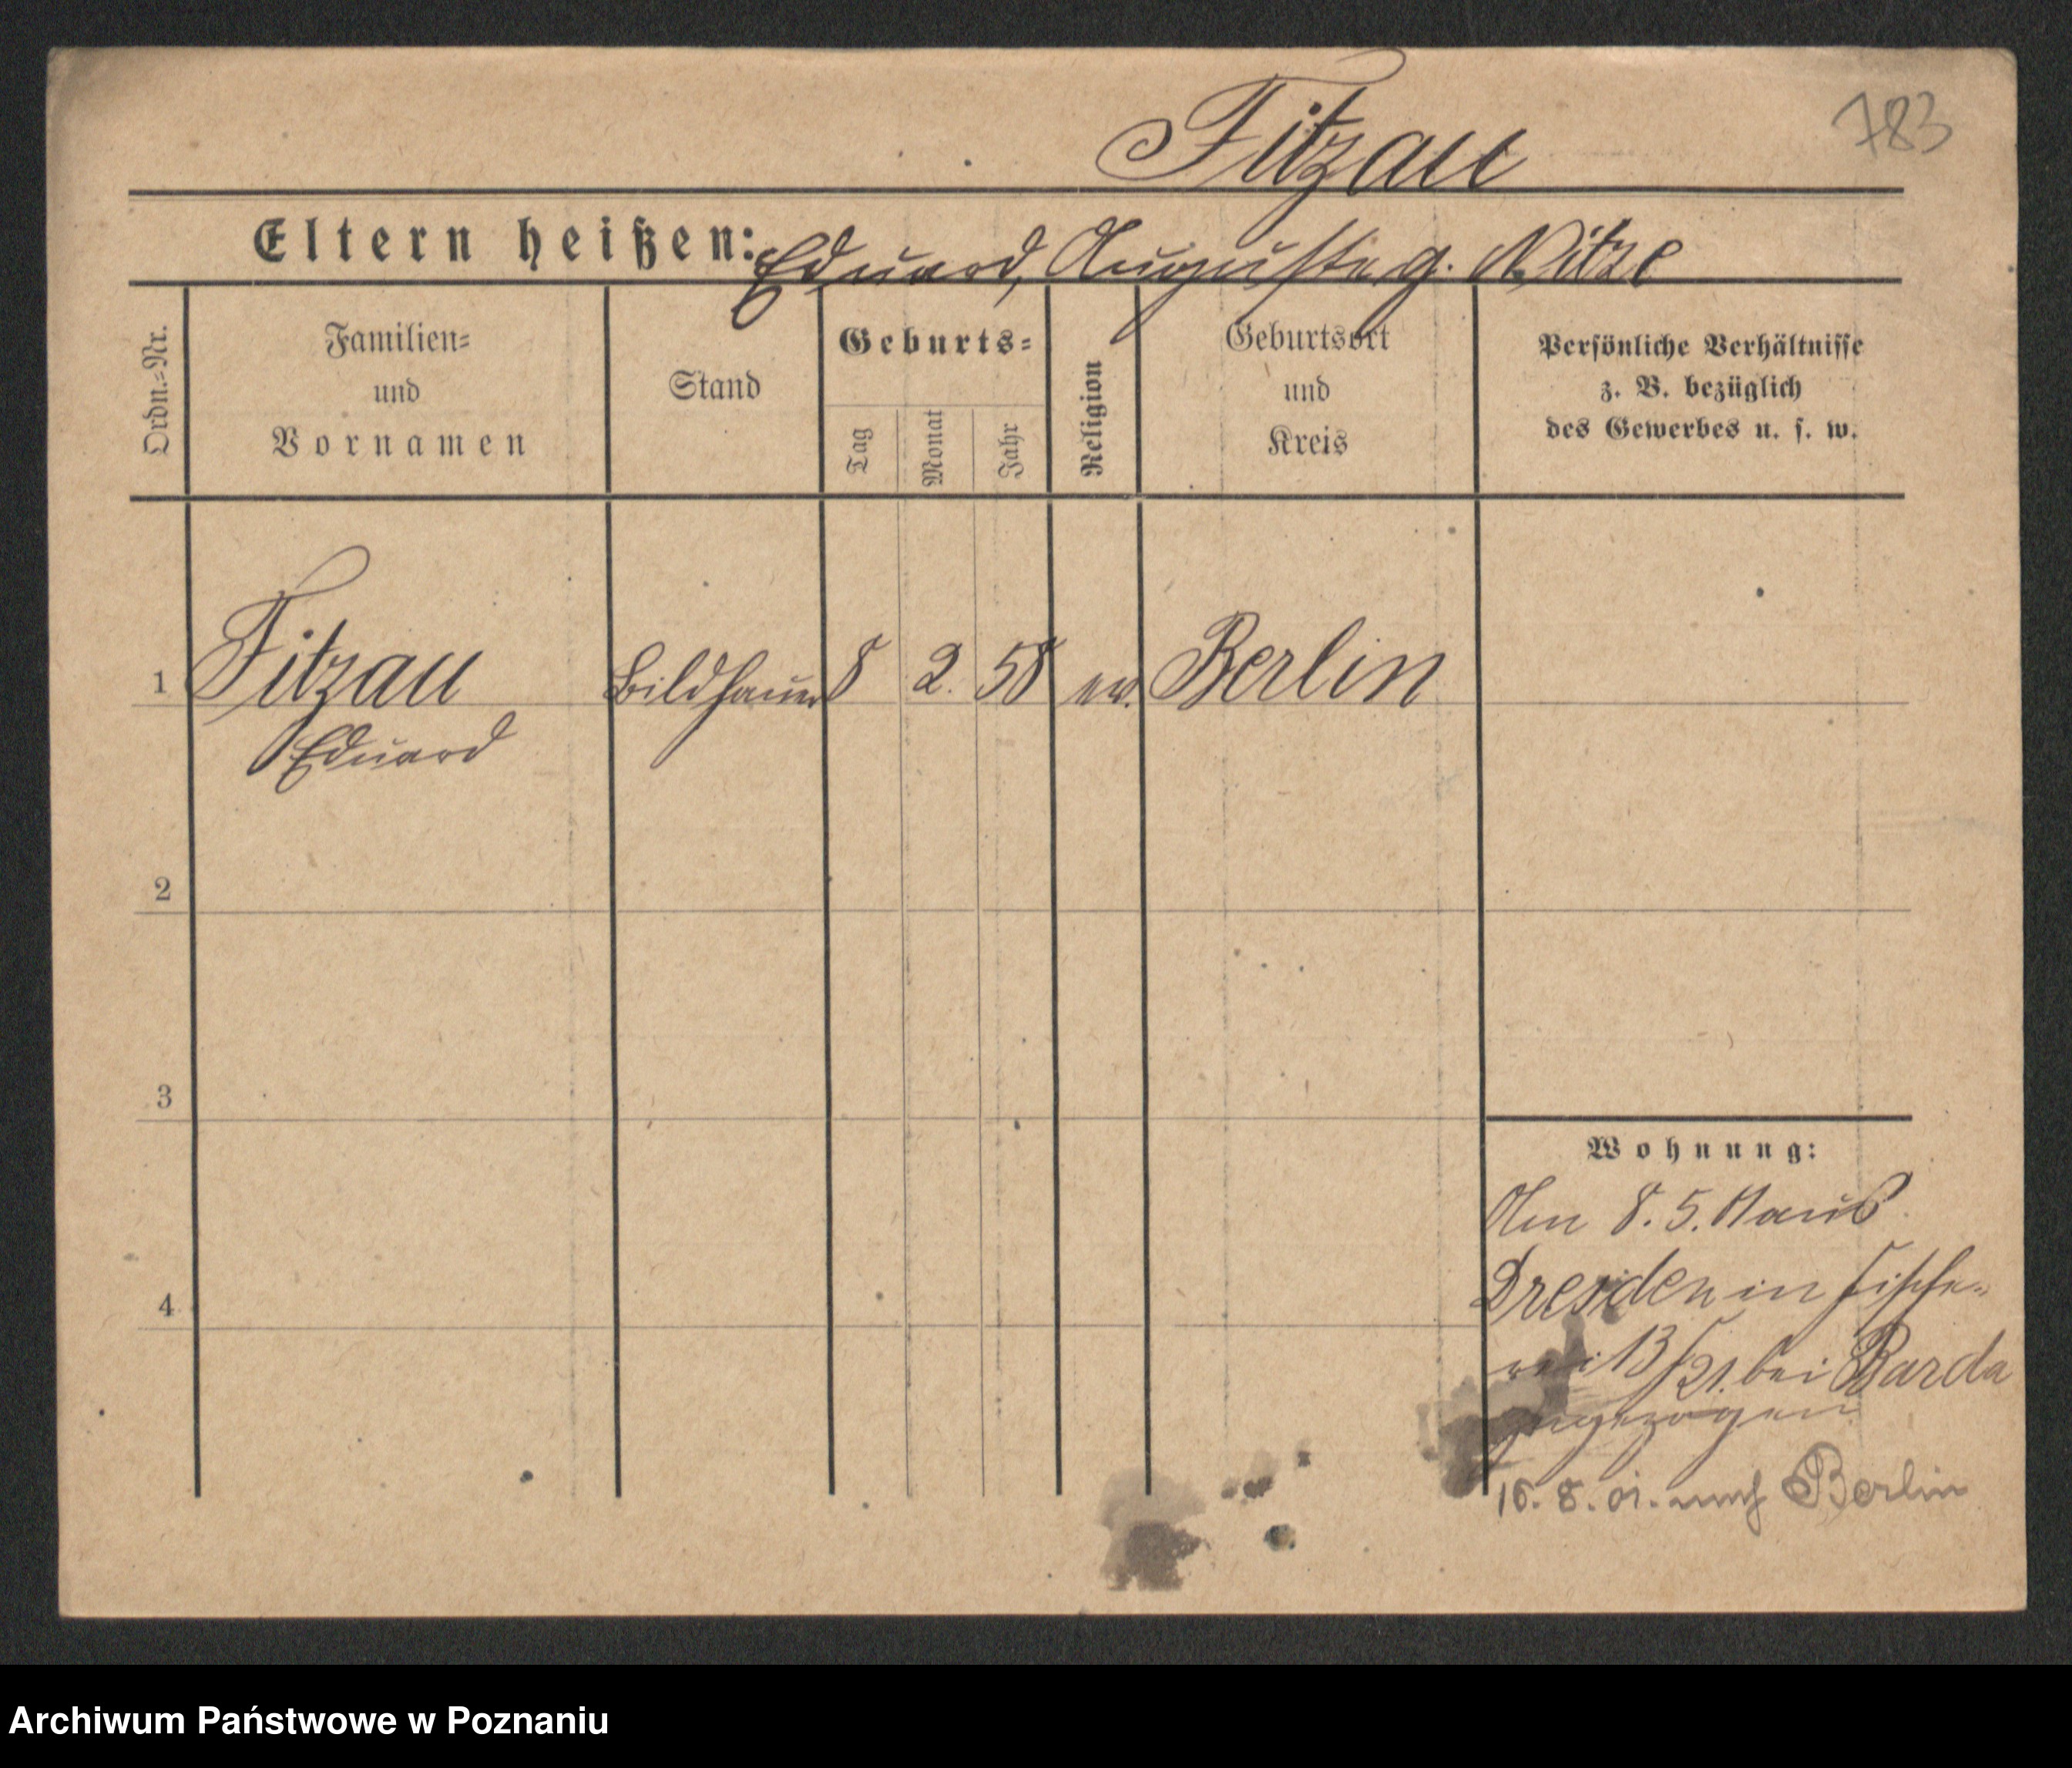 783
Fitzau
Eltern heißen: Eduard, Auguste g. Nitze
Ordn.=Nr.
Familien=
und
Vornamen
Stand
Geburts=
Tag
Monat
Jahr
Religion
Geburtsort
und
Kreis
Persönliche Verhältnisse
z. B. bezüglich
des Gewerbes u. s. w.
1 Fitzau Bildhauer 8 2. 58 ev. Berlin
Eduard
2
3
4
Wohnung:
Am 8. 5. aus
Dresden in Fische-
rei 13/21. bei Barda
zugezogen
16. 8. 01. nach Berlin
Archiwum Państwowe w Poznaniu